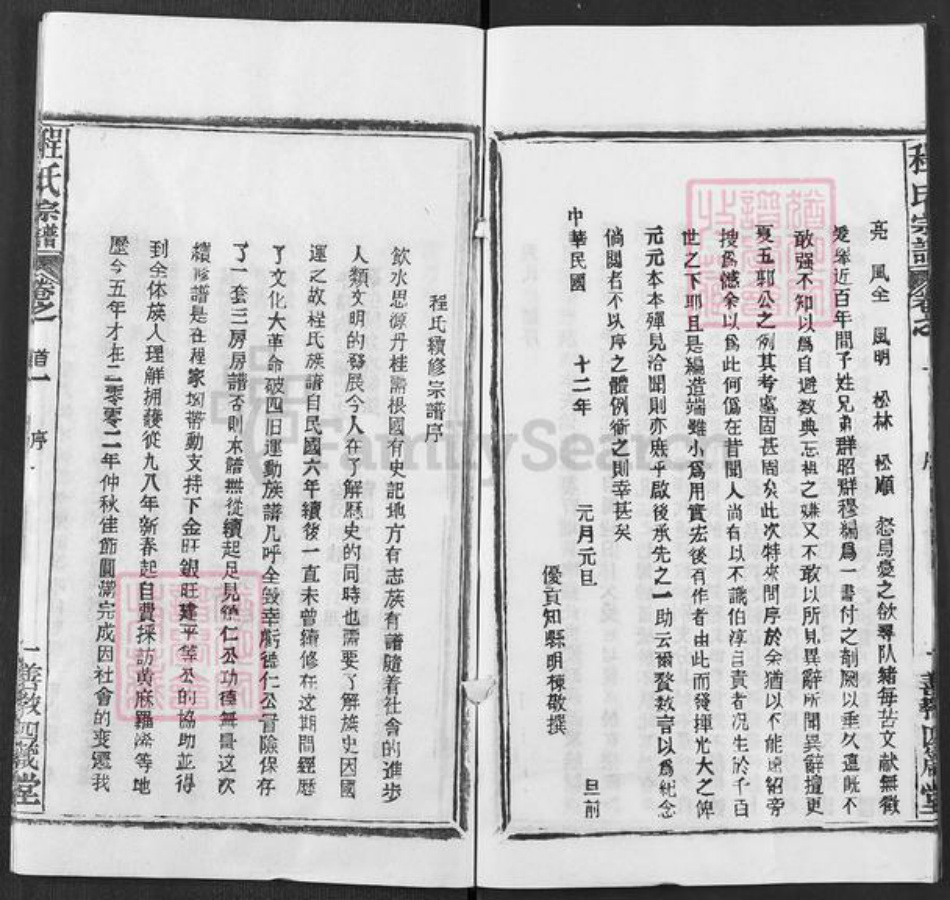 程氏宗譜
亮 風全 風明 松林 松順 怒焉憂之欲尋队緒每苦文献無徵
爰舉近百年間子姓兄弟群昭群穆編爲一書付之剞劂以垂久遠既不
敢强不知以爲自避数典忘祖之嫌又不敢以所見異辭所聞異辭擅更
夏五郭公之例其考處固甚周矣此次特來問序於余猶以不能遠紹旁
搜爲憾余以爲此何傷在昔聞人尚有以不識伯淳自責者况生於千百
世之下耶且是編造端雖小爲用實宏後有作者由此而發揮光大之俾
元元本本殫見洽聞則亦庶乎啟後承先之一助云爾贅数言以爲紀念
倘閱者不以序之體例衡之則幸甚矣
中華民國 十二年 元月元旦
優貢知縣明棟敬撰
旦前
程氏續修宗譜序
飲水思源丹桂需根國有史記地方有志族有譜隨着社會的進步
人類文明的發展今人在了解歷史的同時也需要了解族史因國
運之故程氏族譜自民國六年續後一直未曾續修在这期間經歷
了文化大革命破四旧運動族譜几呼全毁幸虧德仁公冒險保存
了一套三房房譜否則來譜無從續起足見德仁公功德無量这次
續修譜是在程家坳帶動支持下金旺銀旺建平等公的協助並得
到全体族人理解拥護從九八年新春起自費採訪黄麻羅浠等地
歷今五年才在二零零二年仲秋佳節圓滿完成因社會的变遷我
程氏宗譜
卷之一
首一
序
一
善教四箴堂
FamilySearch